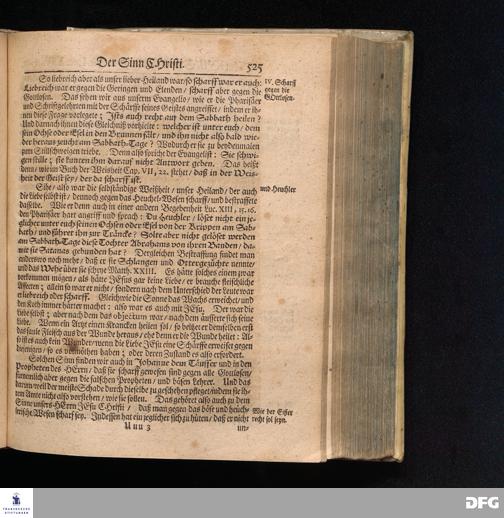 Der Sinn CHristi. 525
So liebreich aber als unser lieber Heiland war/ so scharff war er auch:
Liebreich war er gegen die Geringen und Elenden/ scharff aber gegen die
Gottlosen. Das sehen wir aus unserm Evangelio/ wie er die Pharisäer
und Schrifftgelehrten mit der Schärffe seines Geistes angreiffet/ indem er ih-
nen diese Frage vorlegete; Ists auch recht auf dem Sabbath heilen?
Und darnach ihnen diese Gleichniß vorhielte: welcher ist unter euch/ dem
sein Ochse oder Esel in den Brunnen fält/ und ihn nicht also bald wie-
der heraus zeucht am Sabbath-Tage? Wodurch er sie zu
zum Stillschweigen triebe. Denn also spricht der Evangelist: Sie schwi-
gen stille; sie kunten ihm darauf nicht Antwort geben. Das heißt
denn/ wie im Buch der Weißheit Cap. VII, 22. stehet/ daß in der Weis-
heit der Geist sey/ der da scharff ist.
Sihe/ also war die selbständige Weißheit/ unser Heiland/ der auch
die Liebe selbst ist/ dennoch gegen das Heuchel-Wesen scharff/ und bestraffete
dasselbe. Wie er denn auch in einer andern Begebenheit Luc. XIII, 15. 16.
den Pharisäer hart angriff und sprach: Du Heuchler/ löset nicht ein je-
glicher unter euch seinen Ochsen oder Esel von der Krippen am Sab-
bath/ und führet ihn zur Träncke? Solte aber nicht gelöset werden
am Sabbath-Tage diese Tochter Abrahams von ihren Banden/ da-
mit sie Satanas gebunden hat? Dergleichen Bestraffung findet man
anderswo noch mehr/ daß er sie Schlangen und Ottergezüchte nennte/
und das Wehe über sie schrye Matth. XXIII. Es hätte solches einem zwar
vorkommen mögen/ als hätte JEsus gar keine Liebe/ er brauche fleischliche
Affecten; allein so war er nicht/ sondern nach dem Unterschied der Leute war
er liebreich oder scharff. Gleichwie die Sonne das Wachs erweichet/ und
den Koth immer härter machet: also war es auch mit JEsu. Der war die
Liebe selbst; aber nach dem das objectum war/ nach dem äusserte sich seine
Liebe. Wenn ein Artzt einen Krancken heilen sol/ so heilet er demselben erst
das faule Fleisch aus der Wunde heraus/ ehe denn er die Wunde heilet: Al-
so ist es auch kein Wunder/ wenn die Liebe JEsu eine Schärffe erweiset gegen
diejenigen/ so es vonnöthen haben; oder deren Zustand es also erfordert.
Solchen Sinn finden wir auch in Johanne dem Täuffer und in den
Propheten des HErrn/ daß sie scharff gewesen sind gegen alle Gottlosen/
fürnemlich aber gegen die falschen Propheten/ und bösen Lehrer. Und das
darum/ weil der meiste Schade durch dieselbe zu geschehen pfleget/ indem sie ih-
rem Amte nicht also vorstehen/ wie sie sollen. Das gehöret also auch zu dem
Sinne unsers HErrn JEsu CHristi/ daß man gegen das böse und heuch-
lerische Wesen scharf sey. Indessen hat ein jeglicher sich zu hüten/ daß er nicht
Uuu 3 un-
IV. Scharff
gegen die
GOttlosen
und Heuchler
Wie der Eifer
recht sol seyn.
DFG